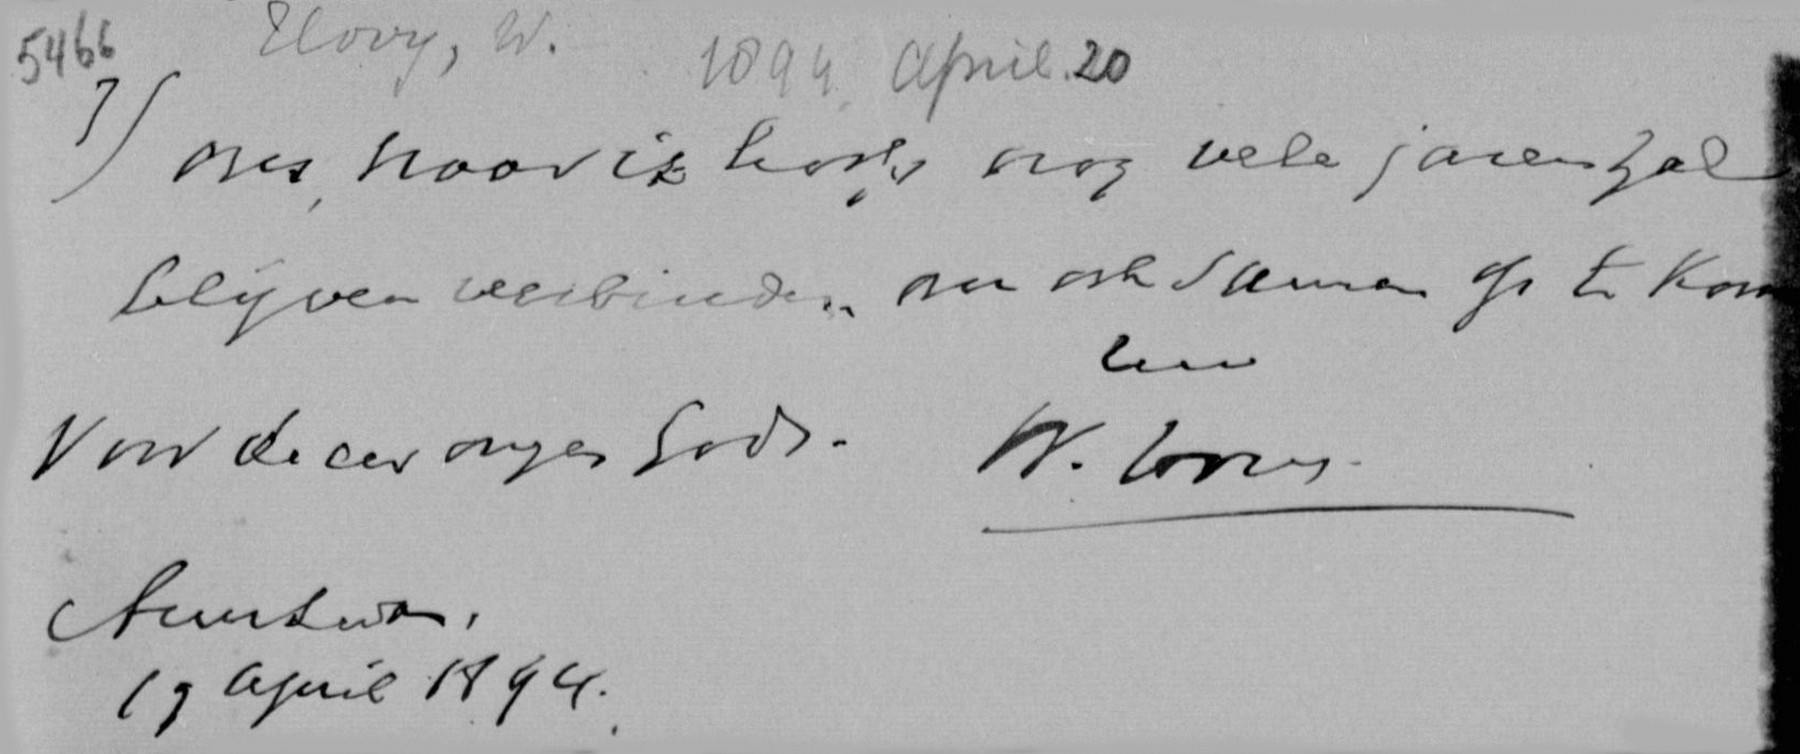 5466 Hovy, W. 1894 April. 20
ons, naar ik hoop nog vele jaren zal
blijven verbinden, om ook samen op te kom
Uw
Voor de eer onzes Gods. W. Hovy.
Amsterdam,
19 April 1894.